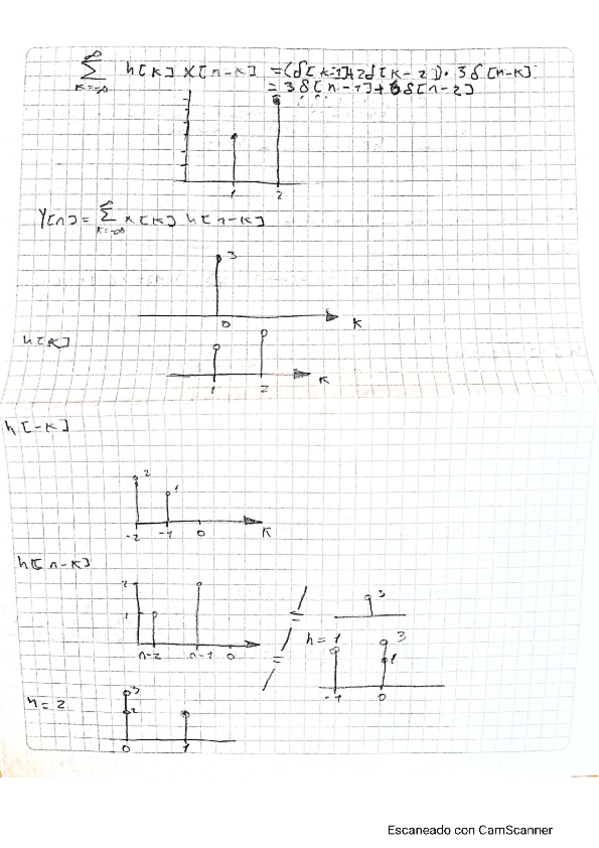 ∞
Σ h[k] x[n-k] = (δ[k-1]+2δ[k-2])· 3δ[n-k]
k=-∞
= 3δ[n-1]+6δ[n-2]
1 2
Y[n] = Σ x[k] h[n-k]
k=-∞
3
0
k
h[k]
1 2 k
h[-k]
2
1
-2 -1 0 k
h[n-k]
2
1
n-2 n-1 0
3
n=1
3
1
-1 0
n=2
3
2
0 1
Escaneado con CamScanner